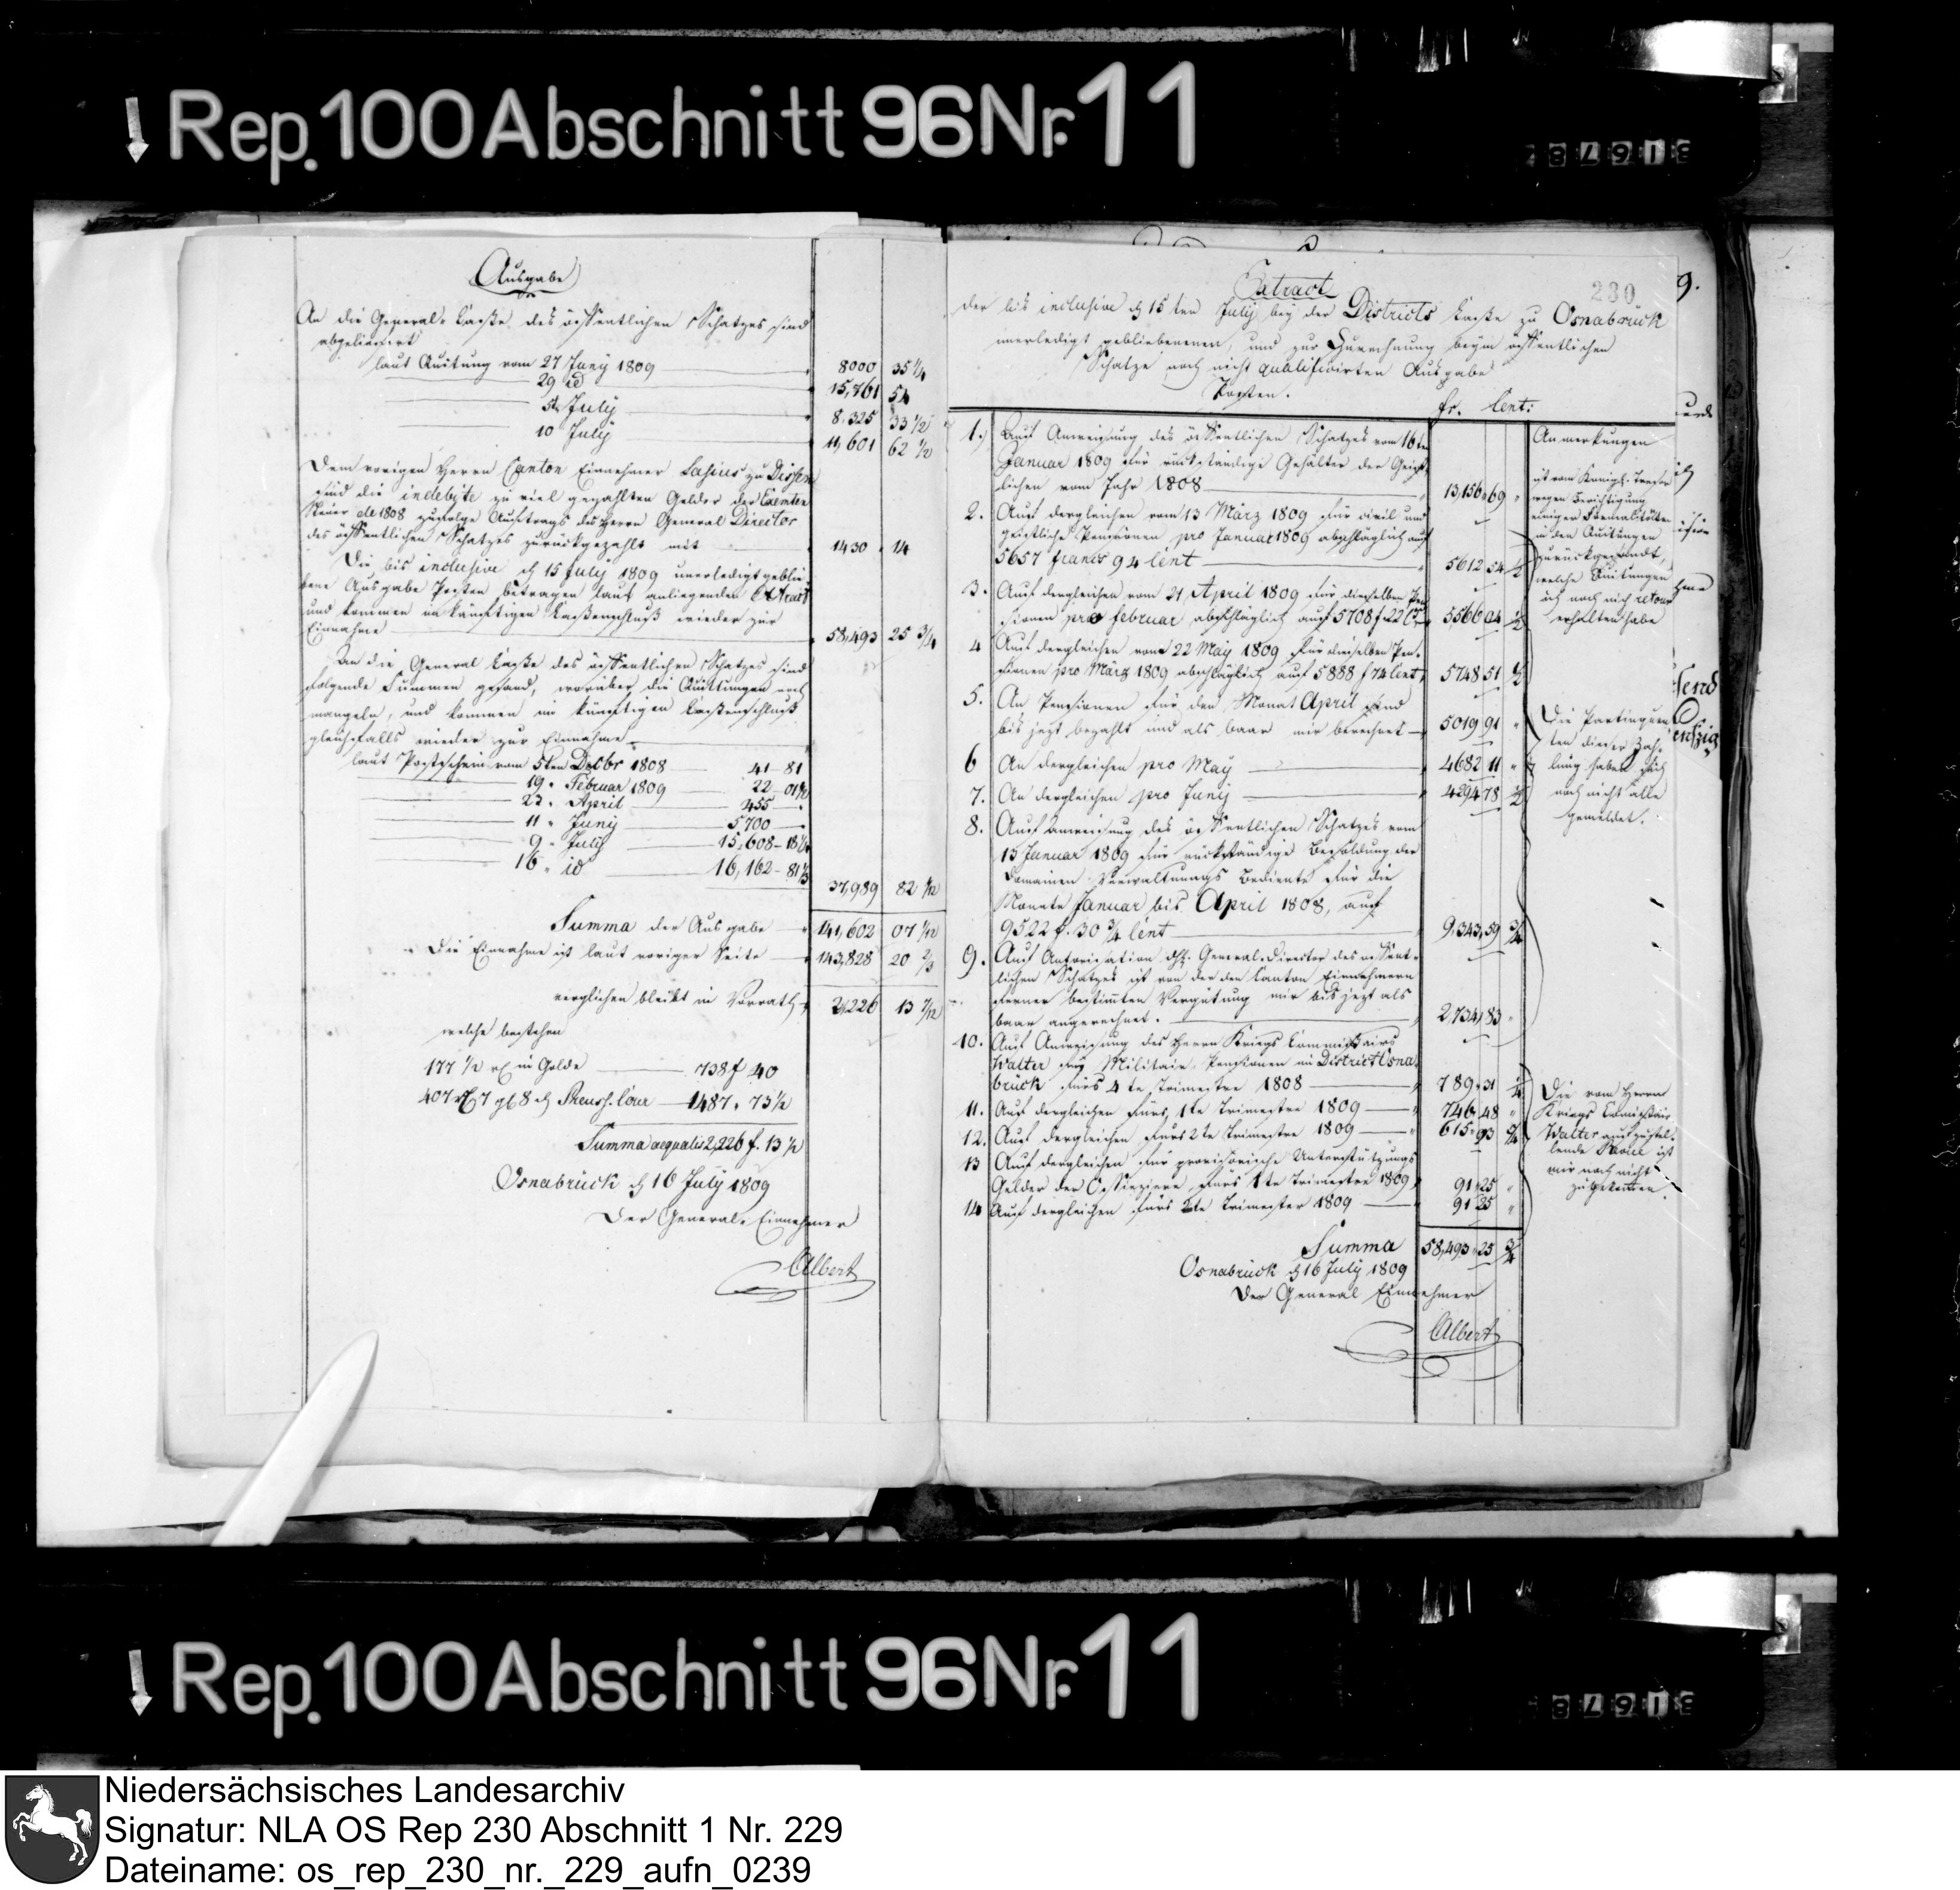 Rep. 100 Abschnitt 96 Nr. 11
31678
Ausgabe
An die General-Casse des öffentlichen Schatzes sind
abgeliefert
laut Quitung vom 27 Juny 1809 8000 35 1/4
29 id 15,761 54
5t July 8,325 33 1/2
10 July 11,601 62 1/2
Dem vorigen Herrn Canton Einnehmer Lasius zu Dissen
sind die indebite zu viel gezahlten Gelder der Exemten
Steuer de 1808 zufolge Auftrags des Herrn General Director
des öffentlichen Schatzes zurückgezahlt mit 1430 14
Die bis inclusive d 15 July 1809 unerledigt geblie-
bene Ausgabe Posten betragen laut anliegenden Extract
und kommen im künftigen Cassenschluß wieder zur
Einnahme 58,493 25 3/4
An die General Casse des öffentlichen Schatzes sind
folgende Summen gesand, worüber die Quittungen noch
mangeln, und kommen im künftigen Cassenschluß
gleichfalls wieder zur Einnahme
laut Postschein vom 5ten Decbr 1808 41 - 81
19 " Februar 1809 22 - 01
23 " April 455
11 " Juny 5700
9 " July 15,608 - 18
16 " id 16,162 - 81 1/3
37,989 82 1/12
Summa der Ausgabe 141,602 07 1/12
Die Einnahme ist laut voriger Seite 143,828 20 2/3
verglichen bleibt in Vorrath 2,226 13 7/12
welche bestehen
177 1/2 in Golde 738 f 40
407 7 8 Preuss. Cour 1487 " 73 1/2
Summa aequalis 2,226 f. 13 1/2
Osnabrück d 16 July 1809
Der General-Einnehmer
Albert
230
Extract
der bis inclusive d 15ten July bey der Districts Casse zu Osnabrück
unerledigt gebliebenen, und zur Zurechnung beym öffentlichen
Schatze noch nicht qualificirten Ausgabe
Posten.
fr. Cent:
Anmerkungen
1. Auf Anweisung des öffentlichen Schatzes vom 16ten
Januar 1809 für rückständige Gehälter der Geist-
lichen vom Jahr 1808 13,156 69
2. Auf dergleichen vom 13 März 1809 für civil und
geistliche Pensionen pro Januar 1809 abschläglich auf
5657 francs 94 Cent 5612 54 1/2
3. Auf dergleichen vom 21 April 1809 für dieselben Pen-
sionen pro februar abschläglich auf 5708 f 22 C 5566 04 1/2
4 Auf dergleichen vom 22 May 1809 für dieselben Pen-
sionen pro März 1809 abschläglich auf 5888 f 74 Cent 5748 51 1/2
ist vom Königl. Tresor
wegen Berichtigung
einiger Formalitäten
in den Quitungen
zurückgesandt,
welche Quitungen
ich noch nicht retour
erhalten habe
5. An Pensionen für den Monat April sind
bis jezt bezahlt und als baar mir berechnet 5019 91
6 An dergleichen pro May 4682 11
7. An dergleichen pro Juny 4294 78 1/2
Die
ten dieser Zah-
lung haben sich
noch nicht alle
gemeldet.
8. Auf Anweisung des öffentlichen Schatzes vom
13 Januar 1809 für rückständige Besoldung der
Domainen Verwaltungs Bediente für die
Monate Januar bis April 1808, auf
9522 f. 30 3/4 Cent 9,343 59 3/4
9. Auf Autorisation des H. General-Director des öffent-
lichen Schatzes ist von der den Canton Einnehmern
ferner bestimten Vergütung mir bis jezt als
baar angerechnet. 2,734 83
10. Auf Anweisung des Herrn Kriegs Commissairs
Walter für Militair-Pensionen im District Osna-
brück fürs 4te Trimestre 1808 789 31 1/4
11. Auf dergleichen fürs 1te Trimestre 1809 746 48
12. Auf dergleichen fürs 2te Trimestre 1809 615 93 3/4
13 Auf dergleichen für provisorische Unterstützungs
Gelder der Officziere fürs 1te Trimestre 1809 91 25
14 Auf dergleichen fürs 2te Trimester 1809 91 25
Die vom Herrn
Kriegs Comissair
Walter auszustel-
lende ist
mir noch nicht
Summa 58,493 25 3/4
Osnabrück d 16 July 1809
Der General Einnehmer
Albert
Rep. 100 Abschnitt 96 Nr. 11
31678
Niedersächsisches Landesarchiv
Signatur: NLA OS Rep 230 Abschnitt 1 Nr. 229
Dateiname: os_rep_230_nr._229_aufn_0239